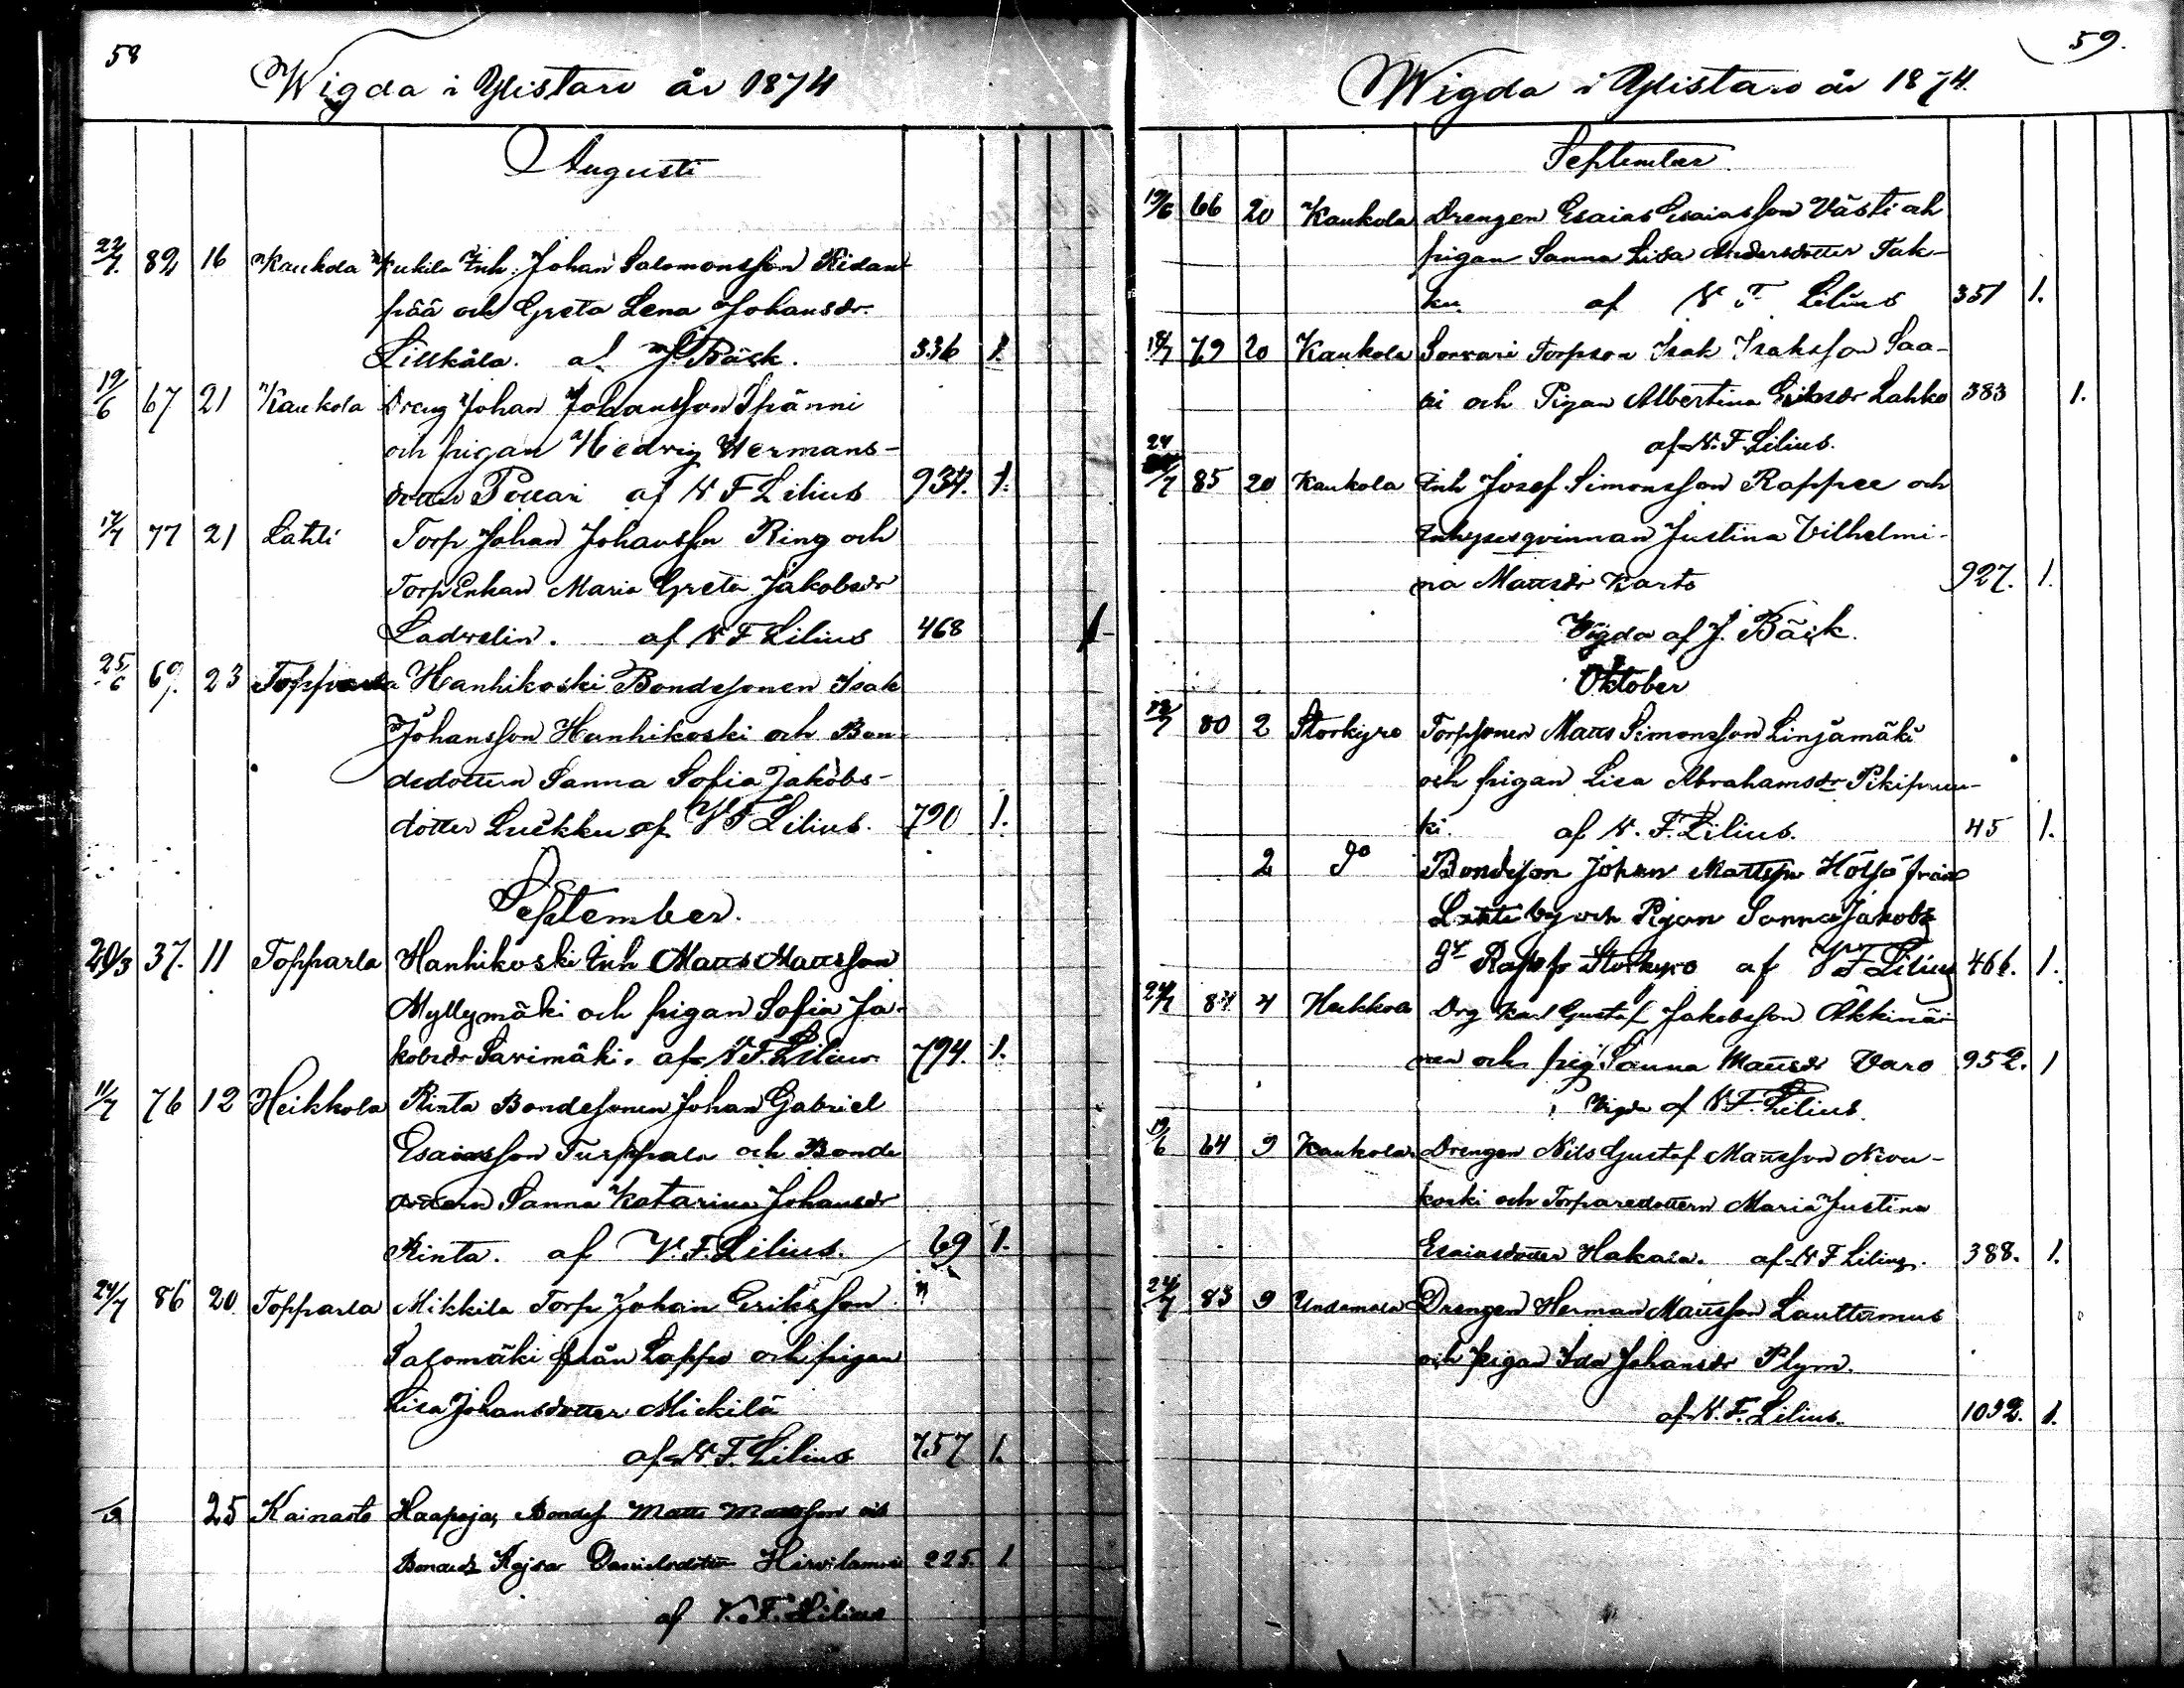 58
Wigda i Ylistaro år 1874
Augusti
22/7. 82 16 Kaukola Kukila Inh. Johan Salomonsson Ridan
pää och Greta Lena Johansdr.
Lillkåla. af J. Bäck. 336 1.
19/6 67 21 Kaukola Dreng Johan Johansson Spänni
och pigan Hedvig Hermans-
dotter Pouari af V F Lilius 934. 1.
17/7 77 21 Lahti Torp Johan Johansson Ring och
TorpEnkan Maria Greta Jakobsdr
Ladvelin. af V F Lilius 468 1
25/6 69. 23 Topparla Hanhikoski Bondesonen Isak
Johansson Hanhikoski och Bon-
dedottern Sanna Sofia Jakobs-
dotter Luckku af V F Lilius. 790 1.
September.
29/3 37. 11 Topparla Hanhikoski Inh Matts Mattsson
Myllymäki och pigan Sofia Ja-
kobsdr Sarimäki. af V. F. Lilius 794. 1.
11/7 76 12 Heikkola Rinta Bondesonen Johan Gabriel
Esaiasson Turppala och Bonde
dottern Sanna Katarina Johansdr
Rinta. af V. F. Lilius. 69 1.
24/7 86 20. Topparla Mikkila Torp Johan Eriksson
Salomäki från Lappo och pigan
Lisa Johansdotter Mickilä
af V. F. Lilius 757 1.
25 Kainasto Haapoja, Bondes Matts Mattsson och
Kajsa Danielsdotter 225. 1
af V. F. Lilius
59.
Wigda i Ylistaro år 1874.
September
19/6 66 20 Kaukola Drengen Esaias Esaiasson Västi och
pigan Sanna Lisa Andersdotter Tak-
ku. af V F Lilius 351 1.
18/7 79 20 Kaukola Sorvari Torpson Isak Isaksson Saa-
ri och Pigan Albertina Eriksdr Lahko 383 1.
af V. F. Lilius.
24/7 85 20 Kaukola Inh Josef Simonsson Rappee och
Inhysesqvinnan Justina Vilhelmi-
na Mattsdr Karto 927. 1.
Vigda af J. Bäck.
Oktober
18/7 80 2 Storkyro Torpsonen Matts Simonsson Linjamäki
och pigan Lisa Abrahamsdr Pikipruu-
ki. af V. F. Lilius. 45 1.
2 do Bondeson Johan Mattsson Höljö från
Lahti by och Pigan Sanna Jakobs
dr Storkyro af V F Lilius 466. 1.
24/7 84 4 Heikkola Drg Karl Gustaf Jakobsson Äkkinäi-
nen och pig Sanna Mattsdr Varo 952. 1
Vigda af V. F. Lilius.
19/6 64 9 Kaukola Drengen Nils Gustaf Mattsson Nivu-
koski och Torparedottern Maria Justina
Esaiasdotter Hakala. af V F Lilius. 388. 1.
24/7 83 9 Untamala Drengen Herman Mattsson Lauttamus
och pigan Ida Johansdr Plym.
af V. F. Lilius. 1092. 1.